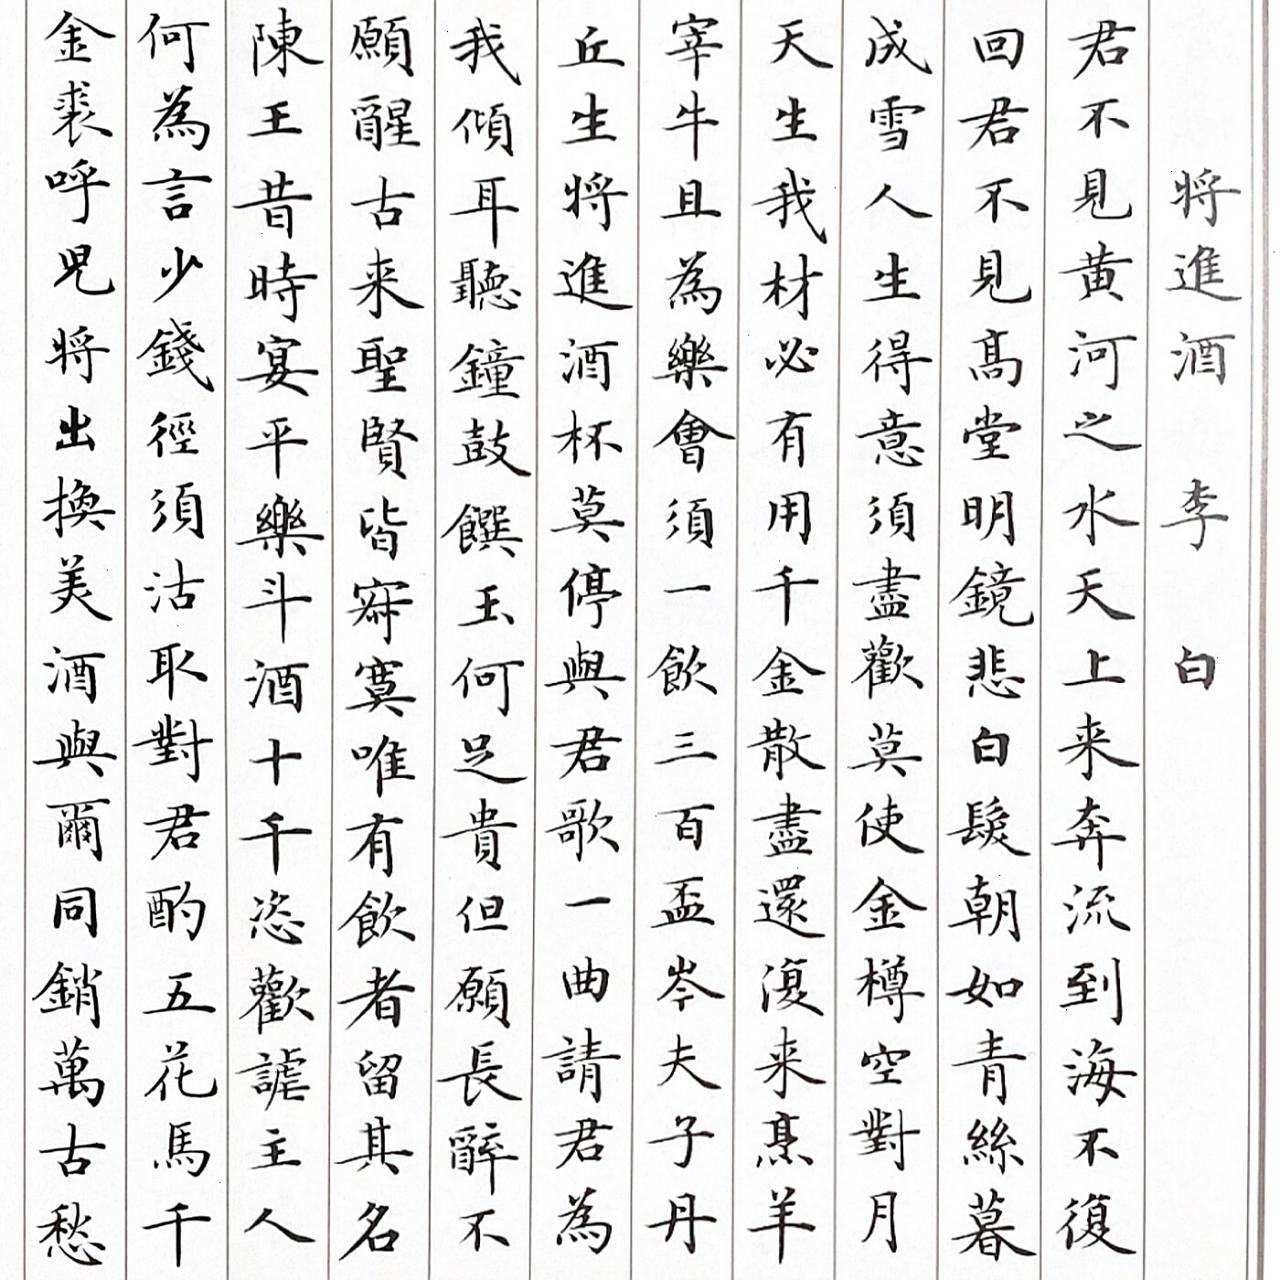 將進酒 李白
君不見黃河之水天上来奔流到海不復
回君不見高堂明鏡悲白髮朝如青絲暮
成雪人生得意須盡歡莫使金樽空對月
天生我材必有用千金散盡還復来烹羊
宰牛且為樂會須一飲三百盃岑夫子丹
丘生將進酒杯莫停與君歌一曲請君為
我傾耳聽鐘鼓饌玉何足貴但願長醉不
願醒古来聖賢皆寂寞唯有飲者留其名
陳王昔時宴平樂斗酒十千恣歡謔主人
何為言少錢徑須沽取對君酌五花馬千
金裘呼兒將出換美酒與爾同銷萬古愁